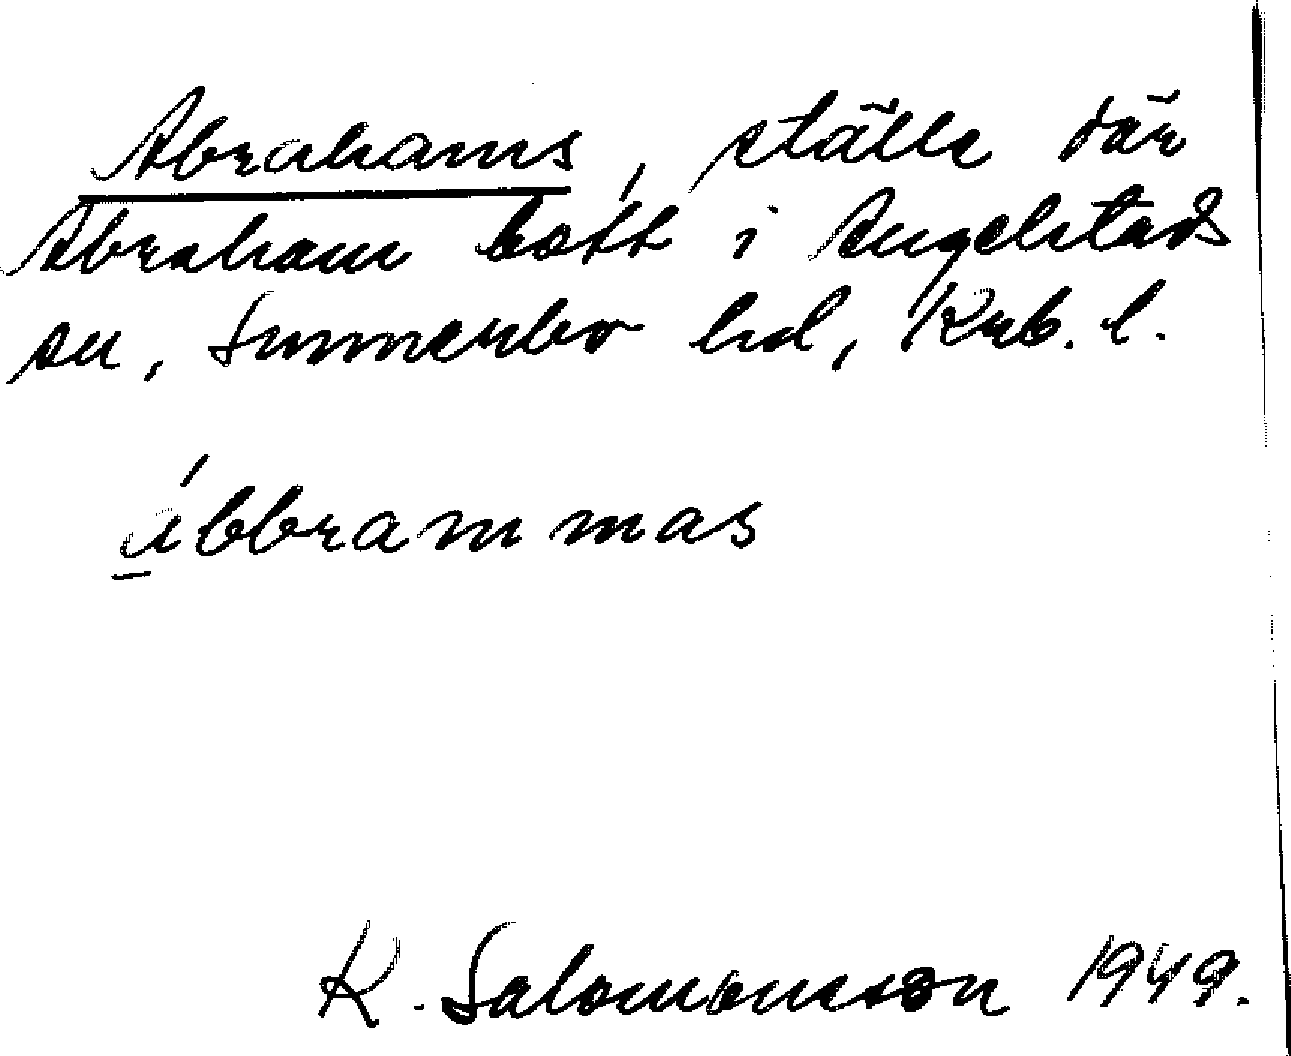 Abrahams, ställe där
Abraham bott i Angelstads
sn, Sunnerbo hd, Krb. l.
ábbrammas
K. Salomonsson 1949.